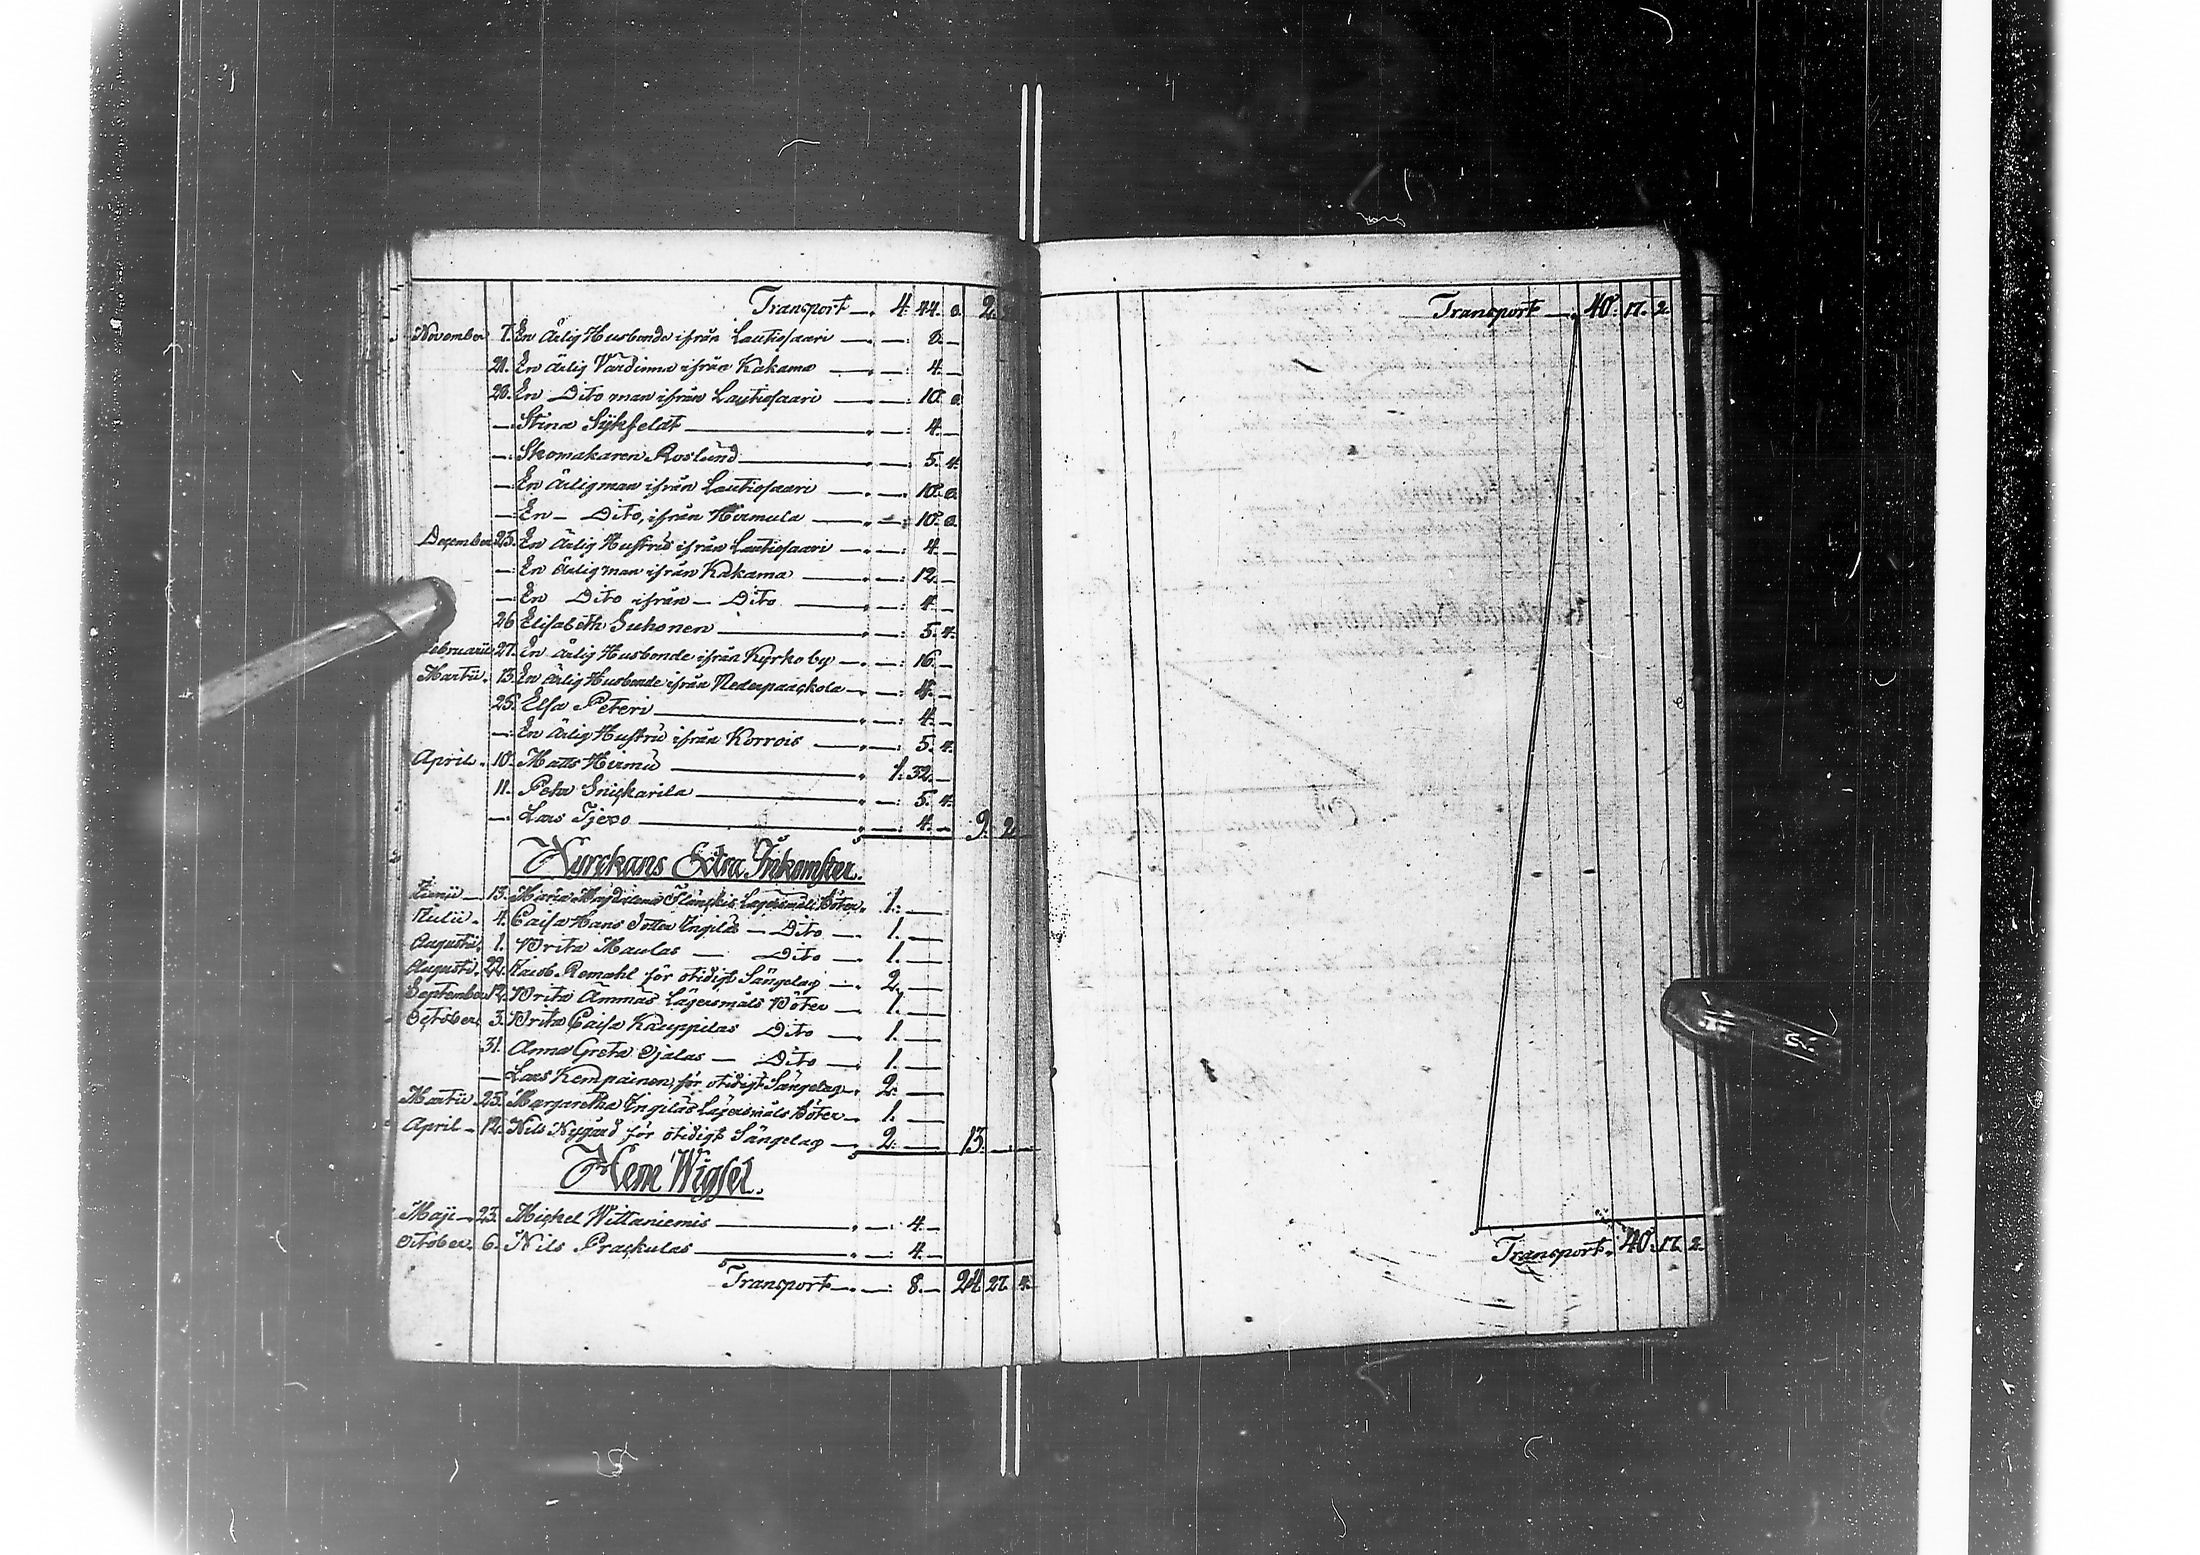 Transport —. 4. 44. 8. 2.
November 7. En ärlig Husbonde ifrån Lautiosaari —. —. 8. —
21. En ärlig Värdinna ifrån Kakama —. —. 4. —
28. En Dito man ifrån Lautiosaari —. —. 10. 8.
—. Stina Sykfeldt —. —. 4. —
—. Skomakaren Roslund —. —. 5. 4.
—. En ärlig man ifrån Lautiosaari —. —. 10. 8.
—. En — Dito, ifrån Hirmula —. —. 10. 8.
December 25. En ärlig Hustru ifrån Lautiosaari —. —. 4. —
—. En ärlig man ifrån Kakama —. —. 12. —
—. En Dito ifrån — Dito —. —. 4. —
26 Elisabeth Suhonen —. —. 5. 4.
Februarii 27. En ärlig Husbonde ifrån Kyrkoby —. —. 16. —
Martii. 13. En ärlig Husbonde ifrån Nederpaackola —. —. 4. —
25. Elsa Peteri —. —. 4. —
—. En ärlig Hustru ifrån Korrois —. —. 5. 4.
April. 10. Matts Hirmu —. 1. 32. —
11. Pehr Snickarila —. —. 5. 4.
—. Lars —. —. 4. — 9. 2
Kyrckans Extra Inkomster.
Junii — 13. Maria Magdalena Lägersmåls Böter. 1. —
Julii. 4. Caisa Hans Dotter Ingilas — Dito —. 1. —
Augusti. 1. Brita Maulas — Dito —. 1. —
Augusti. 22. Jacob Romahl för otidigt Sängelag —. 2. —
September 12. Brita Ammas Lägersmåls Böter —. 1. —
October. 3. Brita Caisa Kauppilas Dito —. 1. —
31. Anna Greta Ojalas — Dito —. 1. —
— Lars Kempainen, för otidigt Sängelag —. 2. —
Martii. 25. Margaretha Ingilas Lägersmåls Böter —. 1. —
April —. 12. Nils Nygård för otidigt Sängelag —. 2. — 13. — —
Hem Wigsel.
Maji —. 23. Mickel Wittaniemis —. —. 4. —
October. 6. Nils Prackulas —. —. 4. —
Transport —. —. 8. — 24. 27. 4.
Transport —. 40. 17. 2.
Transport. 40. 17. 2.